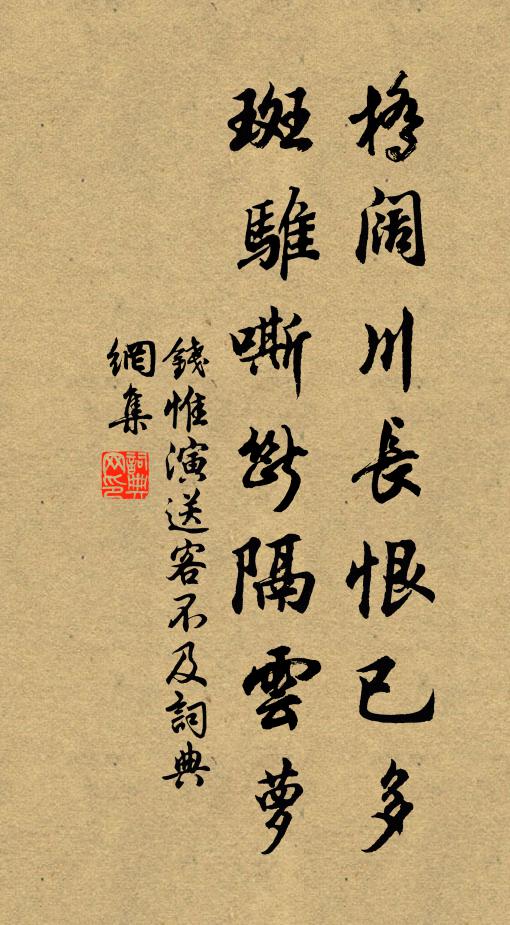 橋闊川長恨已多
斑騅嘶斷隔雲萝
錢惟演送客不及詞典
網集
詞典
网印